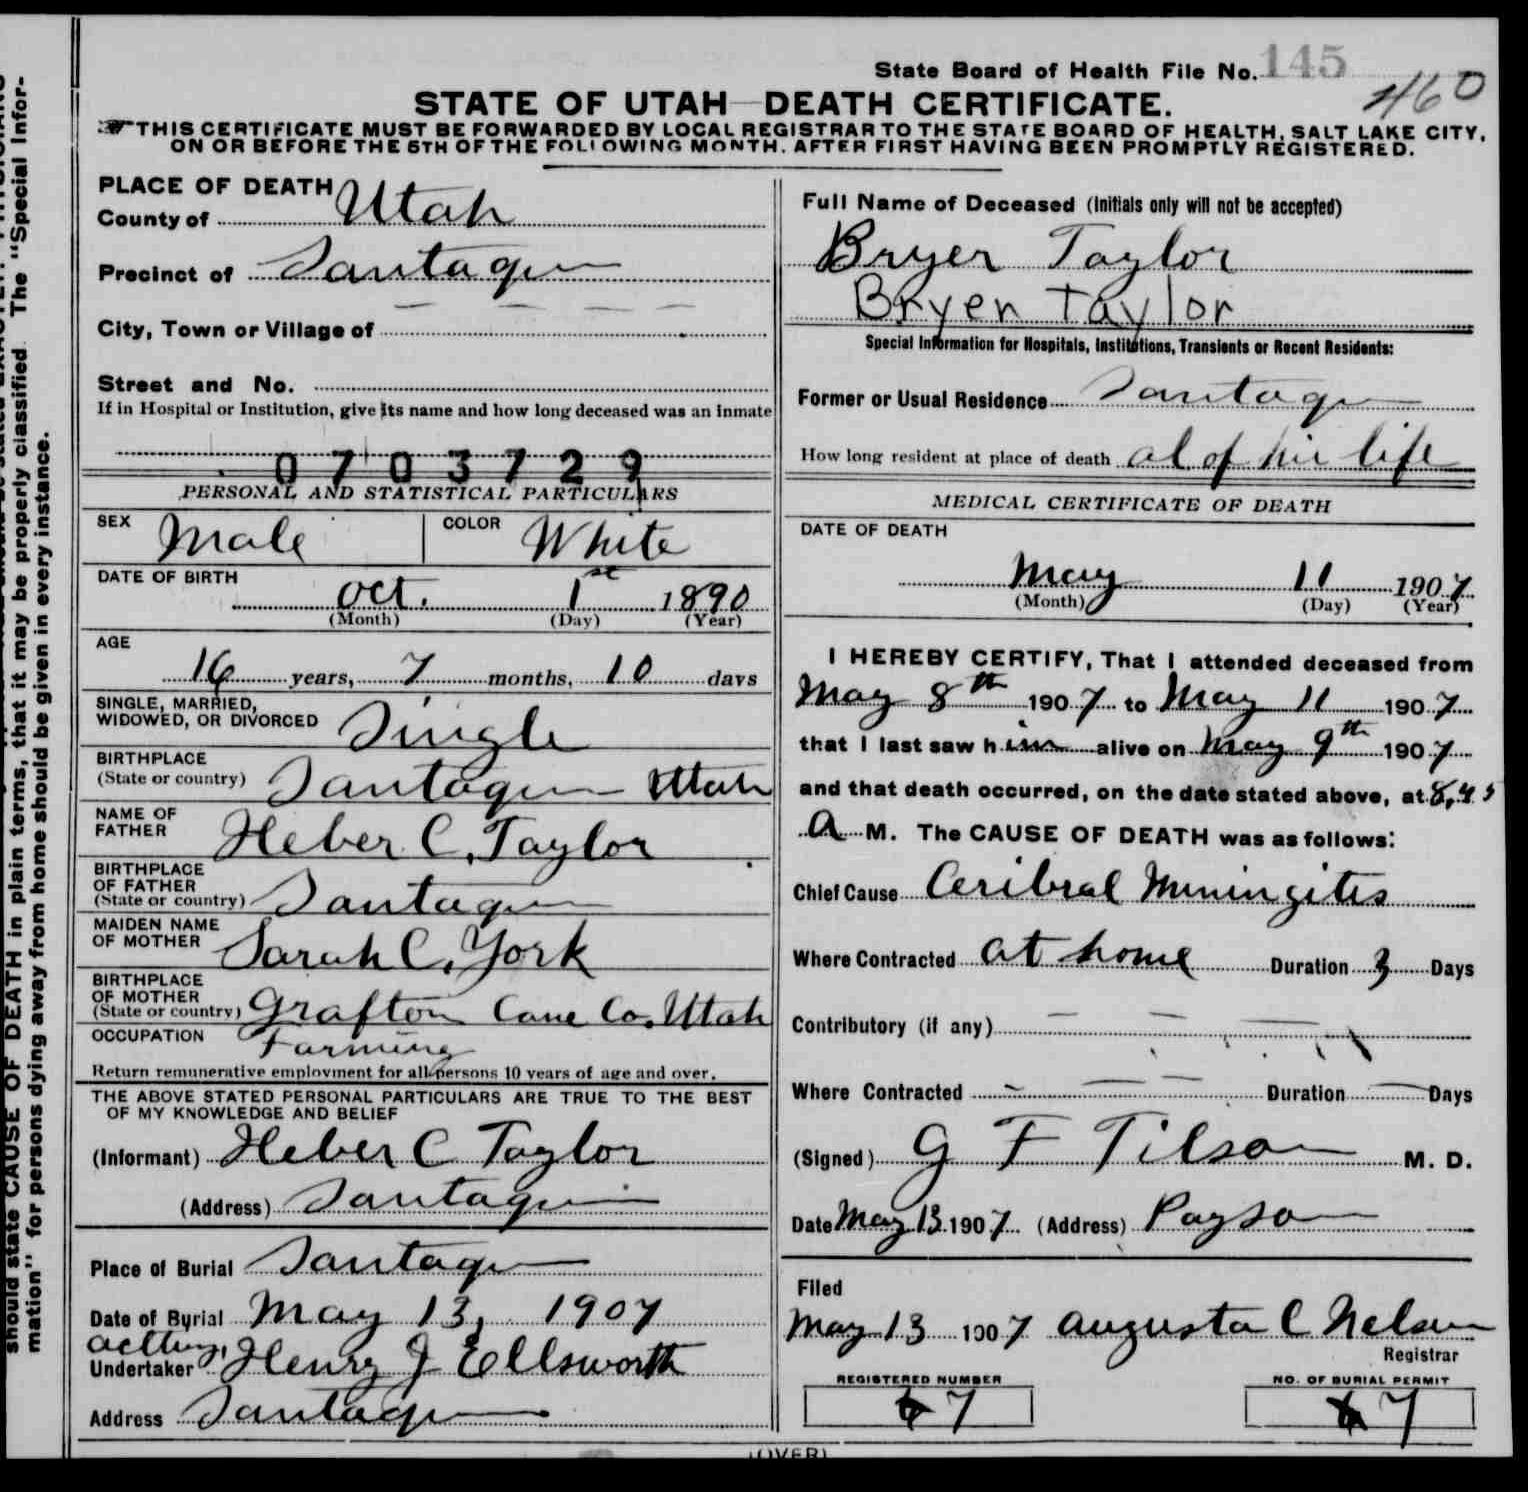 State Board of Health File No. 145
460
STATE OF UTAH—DEATH CERTIFICATE.
THIS CERTIFICATE MUST BE FORWARDED BY LOCAL REGISTRAR TO THE STATE BOARD OF HEALTH, SALT LAKE CITY,
ON OR BEFORE THE 5TH OF THE FOLLOWING MONTH, AFTER FIRST HAVING BEEN PROMPTLY REGISTERED.
PLACE OF DEATH
County of Utah
Precinct of Santaquin
City, Town or Village of
Street and No.
If in Hospital or Institution, give its name and how long deceased was an inmate
0703729
PERSONAL AND STATISTICAL PARTICULARS
SEX Male COLOR White
DATE OF BIRTH
Oct. 1st 1890
(Month) (Day) (Year)
AGE
16 years, 7 months, 10 days
SINGLE, MARRIED,
WIDOWED, OR DIVORCED Single
BIRTHPLACE
(State or country) Santaquin Utah
NAME OF
FATHER Heber C. Taylor
BIRTHPLACE
OF FATHER
(State or country) Santaquin
MAIDEN NAME
OF MOTHER Sarah C. York
BIRTHPLACE
OF MOTHER
(State or country) Grafton Cane Co. Utah
OCCUPATION Farming
Return remunerative employment for all persons 10 years of age and over.
THE ABOVE STATED PERSONAL PARTICULARS ARE TRUE TO THE BEST
OF MY KNOWLEDGE AND BELIEF
(Informant) Heber C Taylor
(Address) Santaquin
Place of Burial Santaquin
Date of Burial May 13, 1907
acting,
Undertaker Henry J Ellsworth
Address Santaquin
Full Name of Deceased (Initials only will not be accepted)
Bryer Taylor
Bryer Taylor
Special Information for Hospitals, Institutions, Transients or Recent Residents:
Former or Usual Residence Santaquin
How long resident at place of death al of his life
MEDICAL CERTIFICATE OF DEATH
DATE OF DEATH
May 11 1907
(Month) (Day) (Year)
I HEREBY CERTIFY, That I attended deceased from
May 8th 1907 to May 11 1907
that I last saw him alive on May 9th 1907
and that death occurred, on the date stated above, at 8,45
A M. The CAUSE OF DEATH was as follows:
Chief Cause Ceribral Miningitis
Where Contracted at home Duration 3 Days
Contributory (if any)
Where Contracted Duration Days
(Signed) G F Tilson M. D.
Date May 13 1907 (Address) Payson
Filed
May 13 1907 Augusta C Nelson
Registrar
REGISTERED NUMBER
7
NO. OF BURIAL PERMIT
7
(OVER)
should state CAUSE OF DEATH in plain terms, that it may be properly classified. The "Special Infor-
mation" for persons dying away from home should be given in every instance.